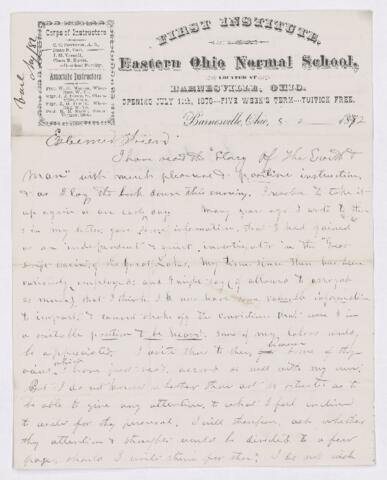 FIRST INSTITUTE,
Eastern Ohio Normal School,
LOCATED AT
BARNESVILLE, OHIO.
OPENING JULY 11th, 1870—FIVE WEEK'S TERM—TUITION FREE.
Corps of Instructors
Associate Instructors
Barnesville, Ohio, 5 2 1872
Esteemed Friend
I have read the "Story of the Earth &
Man" with much pleasure & profitable instruction,
& as I lay the book down this evening, I resolve to take it
up again at an early day Many years ago I wrote to thee
in my letter, gave some information, that I had gained
as an independent & quiet investigator in the "Great
Drift" east of the Great Lakes. My time since then has been
variously employed; and I might say (if allowed to arrogate
as much) that I think I have some valuable information
to impart, & cannot shake off the conviction that were I in
a suitable position to be heard, some of my labors would
be appreciated. I write thus to thee, because some of thy
views, which I have just read, accord so well with my own.
But I do not know whether thou art so situated as to
be able to give any attention to what I feel inclined
to write for thy perusal. I will therefore, ask whether
thy attention & thoughts could be diverted to a few
pages should I write them for thee? I do not wish